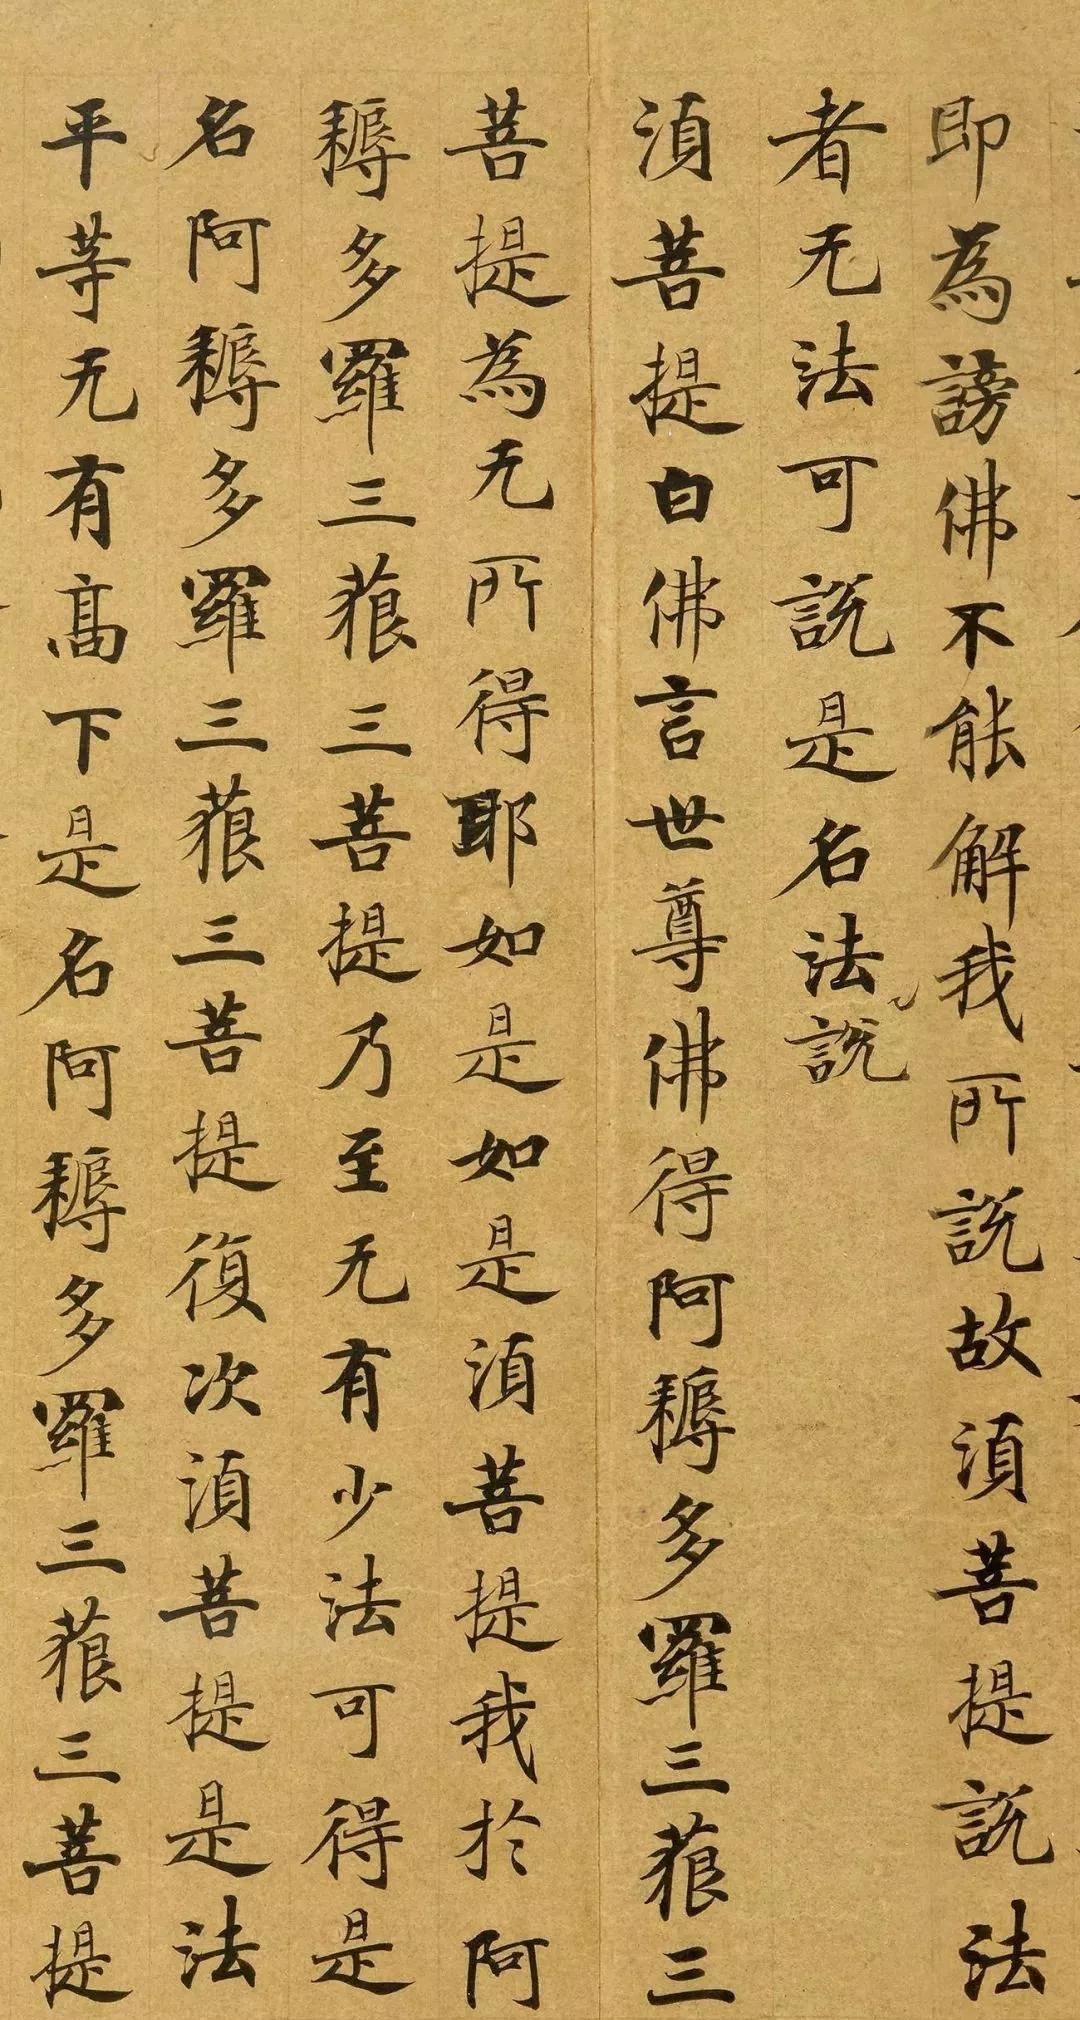 即為謗佛不能解我所說故須菩提說法
者无法可說是名法說
須菩提白佛言世尊佛得阿耨多羅三藐三
菩提為无所得耶如是如是須菩提我於阿
耨多羅三藐三菩提乃至无有少法可得是
名阿耨多羅三藐三菩提復次須菩提是法
平等无有高下是名阿耨多羅三藐三菩提